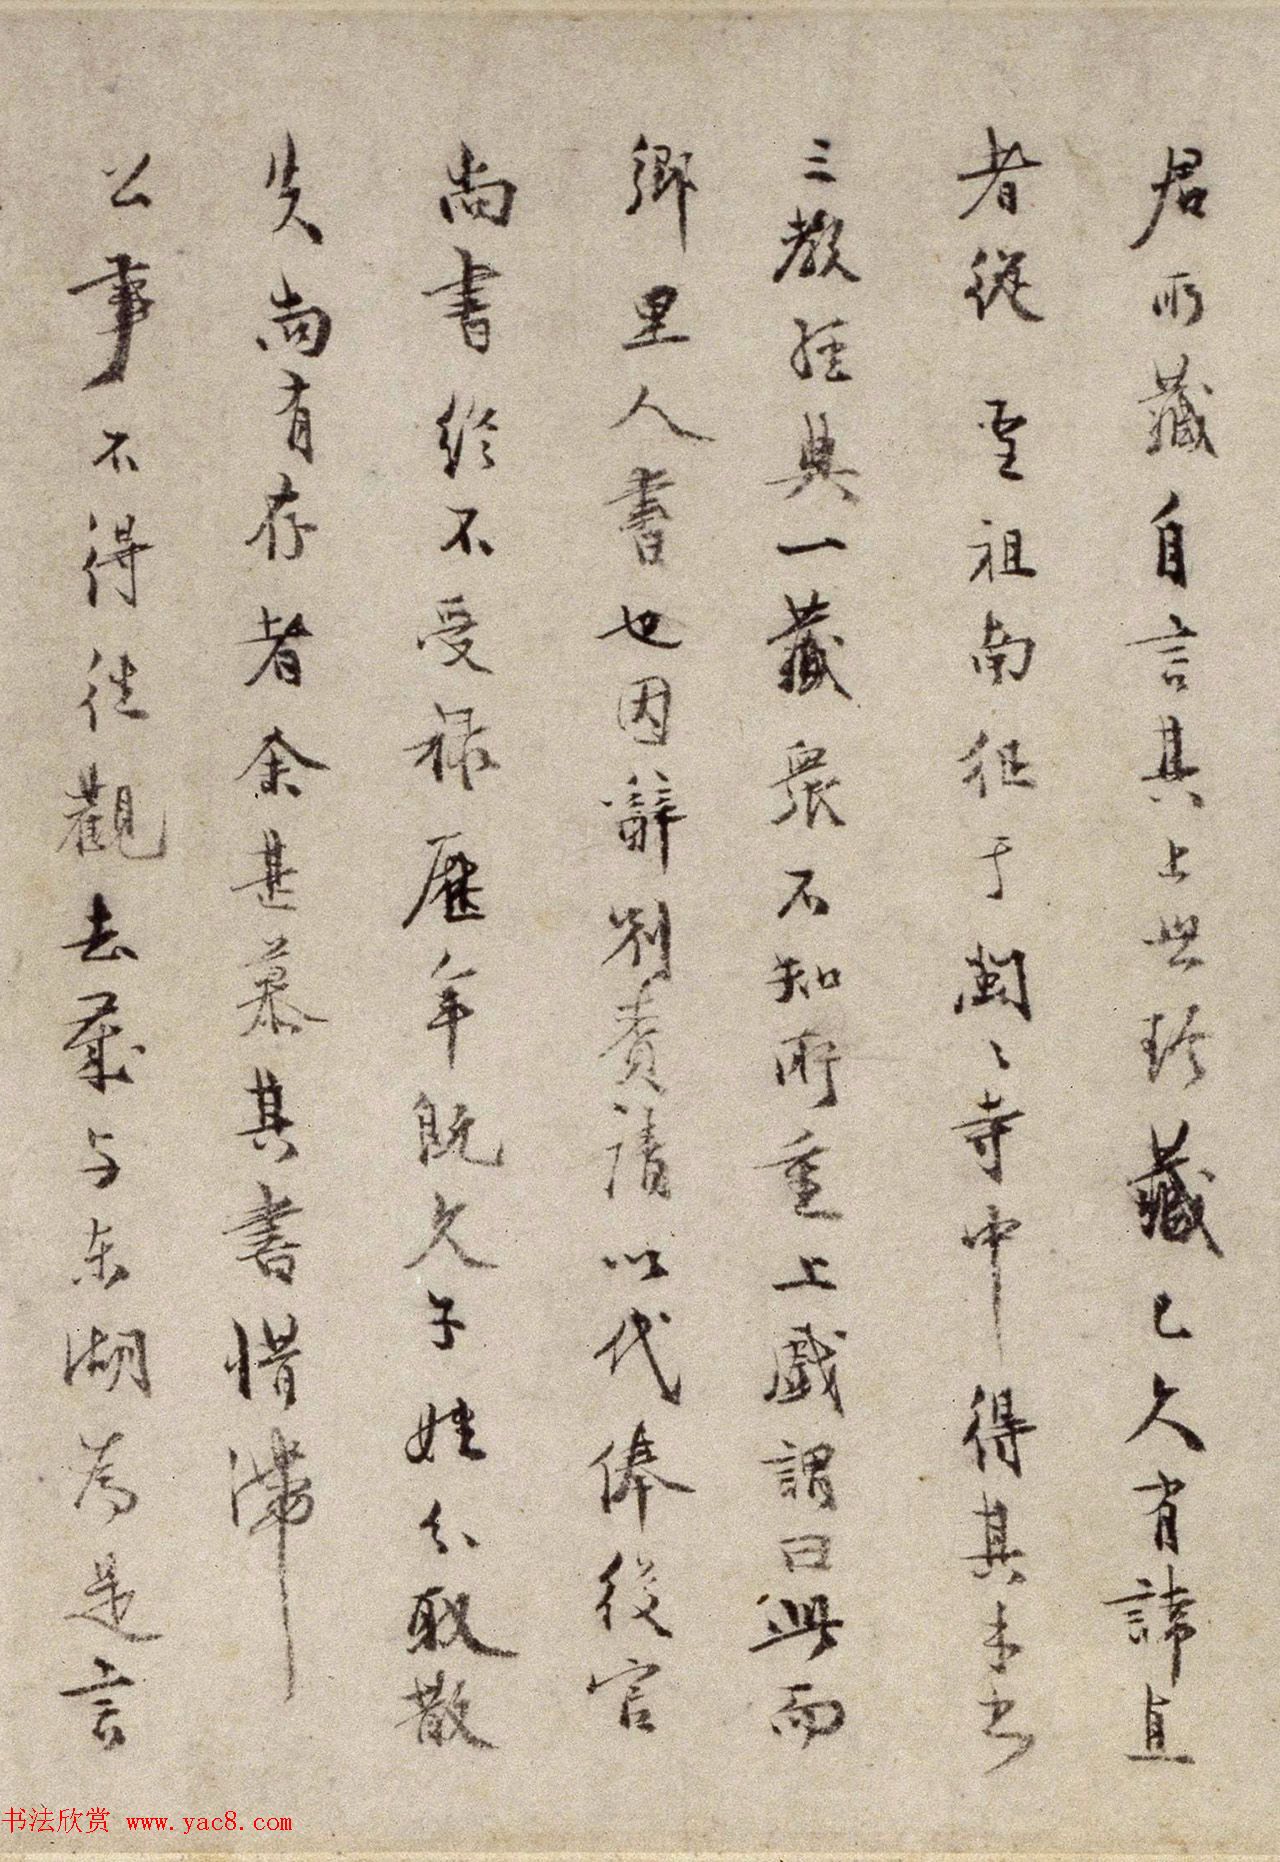 君所藏自言其上世珍藏已久有諱直
者從聖祖南征于閩〻寺中得其木書
三教經典一藏眾不知所重上戲謂曰此而
鄉里人書也因辭別賚請以代俸後官
尚書終不受祿歷年既久子姓分取散
失尚有存者余甚慕其書惜滯
公事不得往觀去歲与東湖為是言
书法欣赏 www.yac8.com